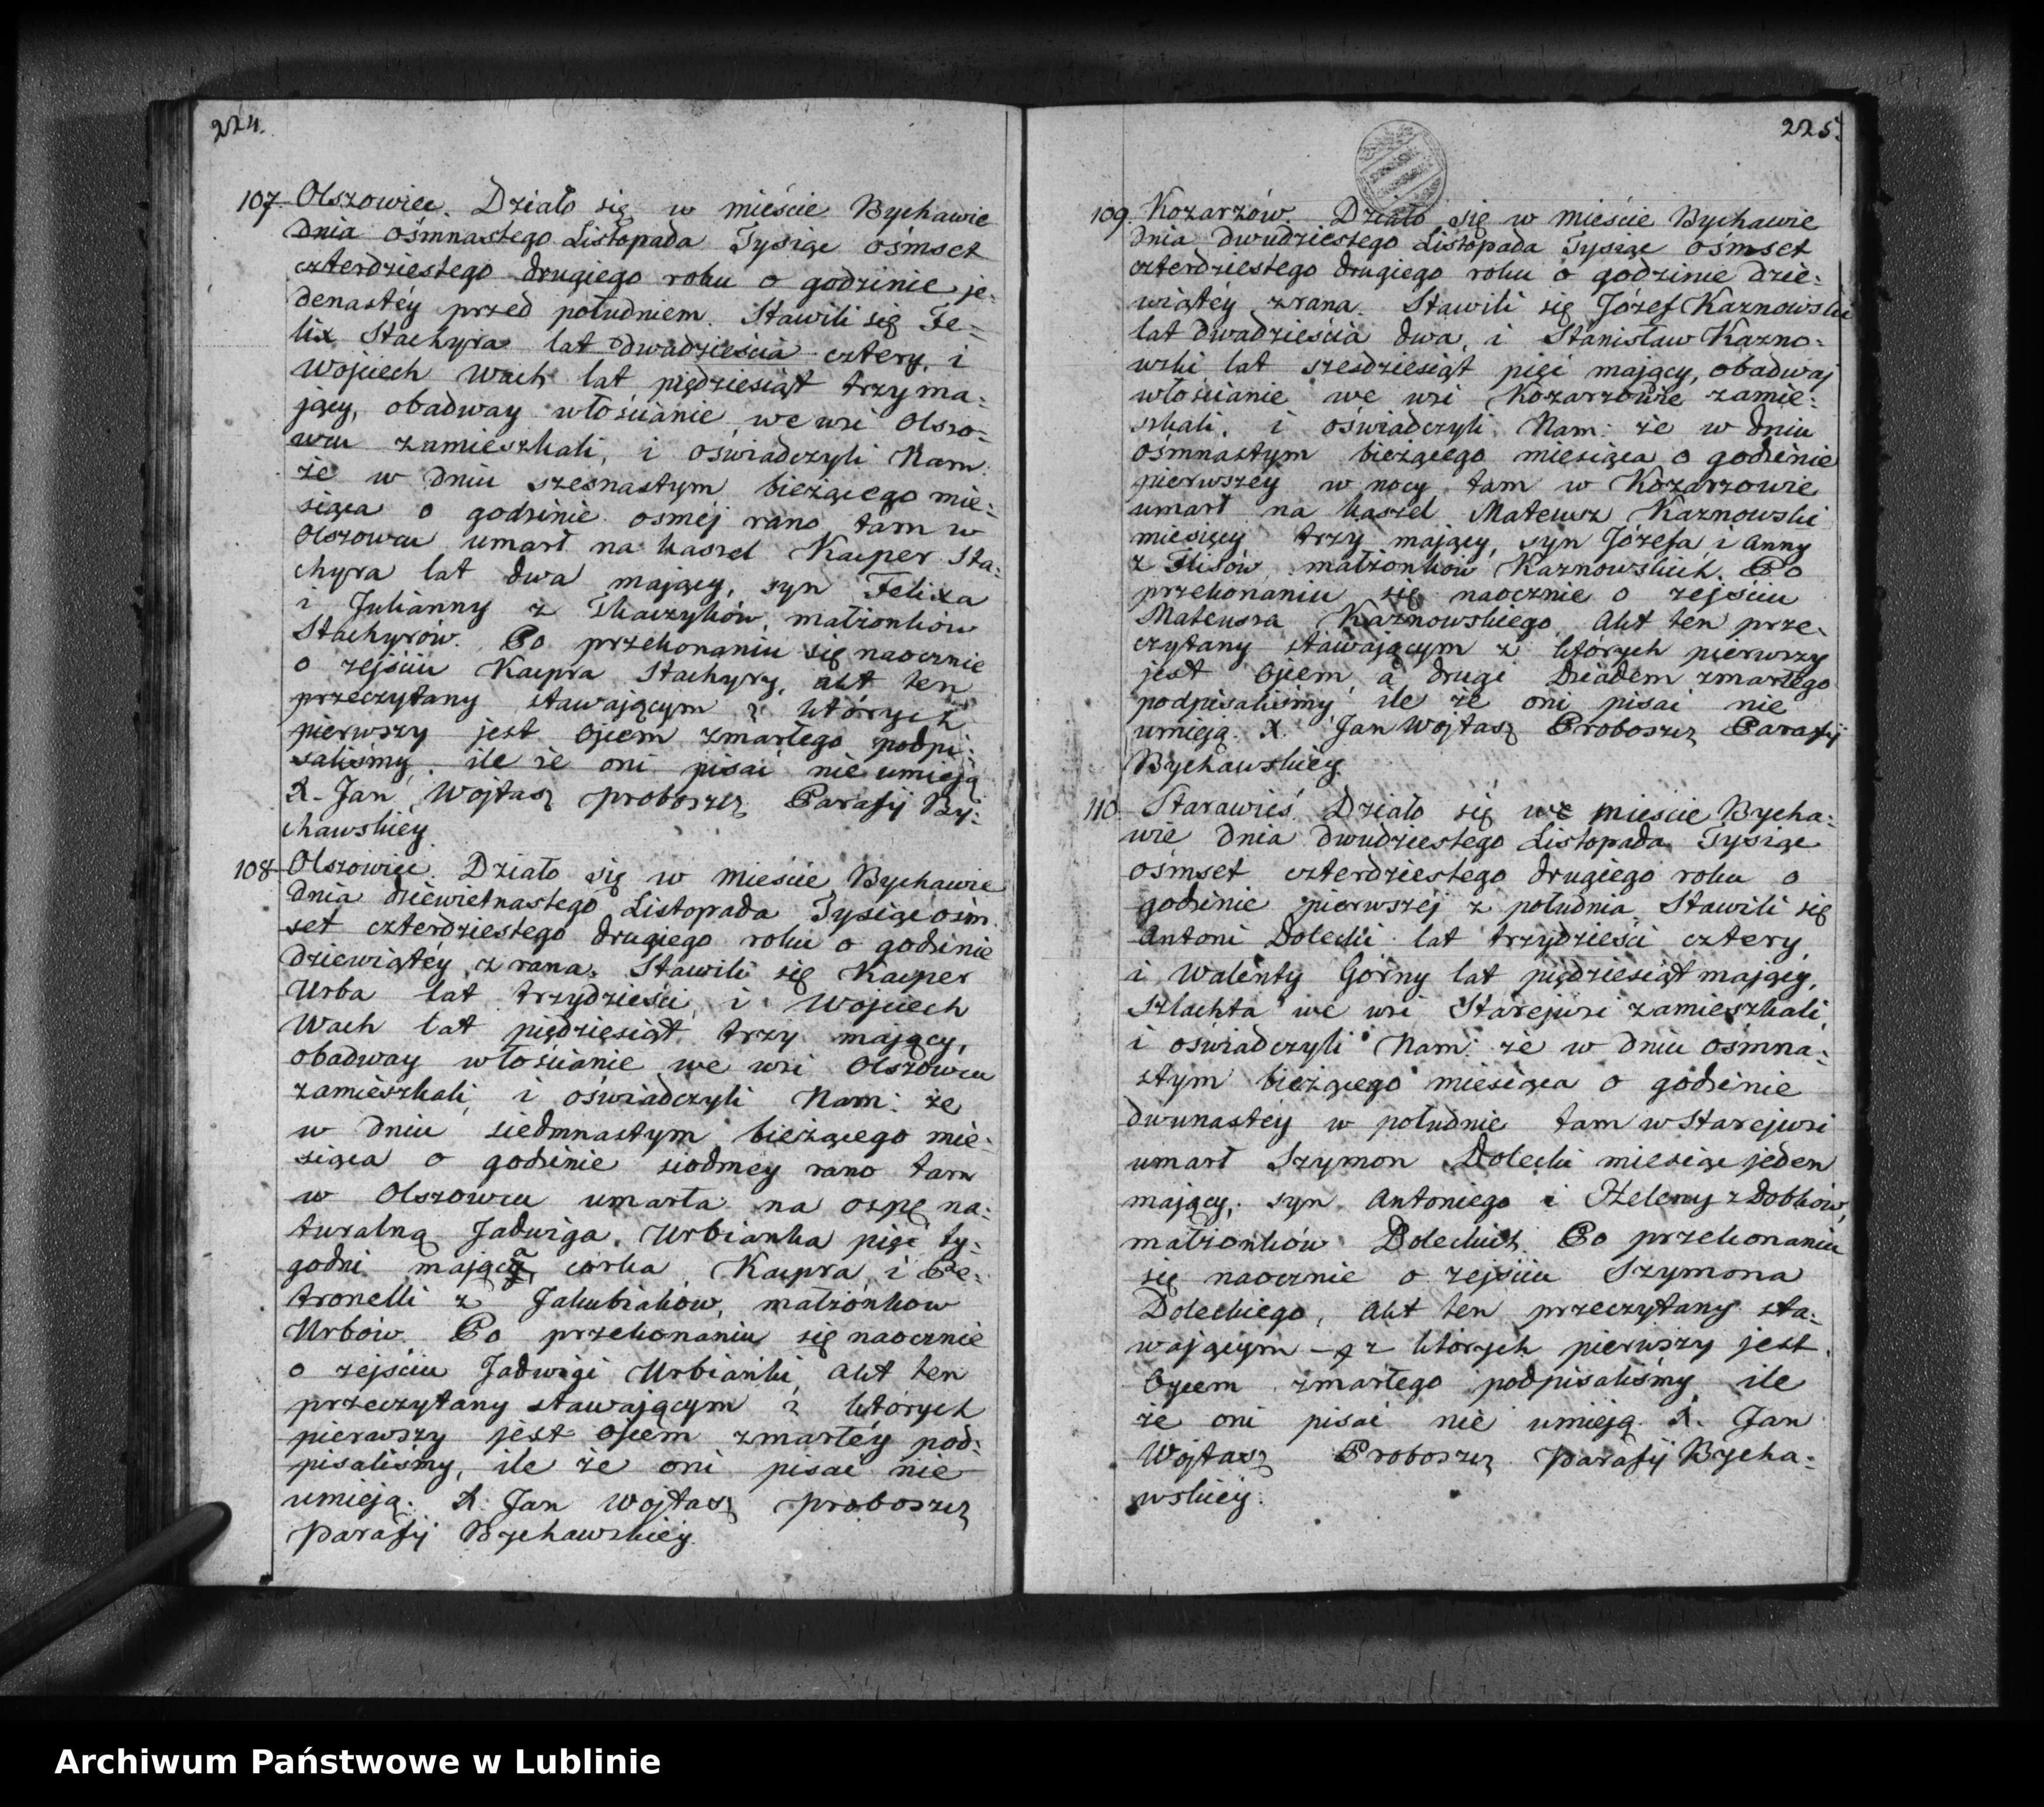 224.
107. Olszowiec. Działo się w mieście Bychawie
dnia ośmnastego Listopada Tysiąc ośmset
czterdziestego drugiego roku o godzinie je-
denastéy przed południem. Stawili się Fe-
lix Stachyra lat dwadzieścia cztery, i
Wojciech Wach lat piędziesiąt trzy ma-
jący, obadway włościanie we wsi Olszo-
wcu zamieszkali, i oświadczyli Nam:
że w dniu szesnastym bieżącego mie-
siąca o godzinie osmej rano, tam w
Olszowcu umarł na kaszel Kacper Sta-
chyra lat dwa mający, syn Felixa
i Julianny z Tkaczyków, małżonków
Stachyrów. Po przekonaniu się naocznie
o zejściu Kacpra Stachyry, akt ten
przeczytany stawającym z których
pierwszy jest Ojcem zmarłego podpi-
saliśmy, ile że oni pisać nie umieją
X. Jan Wojtasz proboszcz Parafij By-
chawskiey.
108 Olszowiec. Działo się w mieście Bychawie
dnia dziewietnastego Listopada Tysiąc ośm
set czterdziestego drugiego roku o godzinie
dziewiątéy z rana. Stawili się Kacper
Urba lat trzydzieści, i Wojciech
Wach lat piędziesiąt trzy mający,
obadway włościanie we wsi Olszowcu
zamieszkali, i oświadczyli Nam: że
w dniu siedmnastym bieżącego mie-
siąca o godzinie siodmey rano tam
w Olszowcu umarła na ospę na-
turalną Jadwiga Urbianka pięć ty-
godni mająca, córka Kacpra i Pe-
tronelli z Jakubiaków, małżonkow
Urbów. Po przekonaniu się naocznie
o zejściu Jadwigi Urbianki, akt ten
przeczytany stawającym z których
pierwszy jest Ojcem zmarłéy pod-
pisaliśmy, ile że oni pisać nie
umieją. X. Jan Wojtasz proboszcz
parafij Bychawskiéy.
225.
109. Kozarzów. Działo się w mieście Bychawie
dnia dwudziestego Listopada Tysiąc ośmset
czterdziestego drugiego roku o godzinie dzie-
wiątéy zrana. Stawili się Józef Kaznowski
lat dwadzieścia dwa, i Stanisław Kazno-
wski lat szesdziesiąt pięć mający, obadwaj
włościanie we wsi Kozarzowie zamie-
szkali, i oświadczyli Nam: że w dniu
ośmnastym bieżącego miesiąca o godzinie
pierwszey w nocy tam w Kozarzowie
umarł na kaszel Mateusz Kaznowski
miesięcy trzy mający, syn Józefa i Anny
z Flisów małżonków Kaznowskich. Po
przekonaniu się naocznie o zejściu
Mateusza Kaznowskiego, akt ten prze-
czytany stawającym z których pierwszy
jest Ojcem, a drugi Dziadem zmarłego
podpisaliśmy, ile że oni pisać nie
umieją. X. Jan Wojtasz Proboszcz Parafij
Bychawskiey.
110 Starawieś. Działo się we mieście Bycha-
wie dnia dwudziestego Listopada Tysiąc
ośmset czterdziestego drugiego roku o
godzinie pierwszéj z południa. Stawili się
Antoni Dolecki lat trzydzieści cztery,
i Walenty Górny lat pięćdziesiąt mający,
szlachta we wsi Starejwsi zamieszkali,
i oświadczyli Nam: że w dniu ośmna-
stym bieżącego miesiąca o godzinie
dwunastéy w południe tam w Starejwsi
umarł Szymon Dolecki miesiąc jeden
mający, syn Antoniego i Heleny z Dobków,
małżonków Doleckich. Po przekonaniu
się naocznie o zejściu Szymona
Doleckiego, akt ten przeczytany sta-
wającym z których pierwszy jest
Ojcem zmarłego podpisaliśmy ile
że oni pisać nie umieją. X. Jan
Wojtasz Proboszcz parafij Bycha-
wskiéy.
Archiwum Państwowe w Lublinie